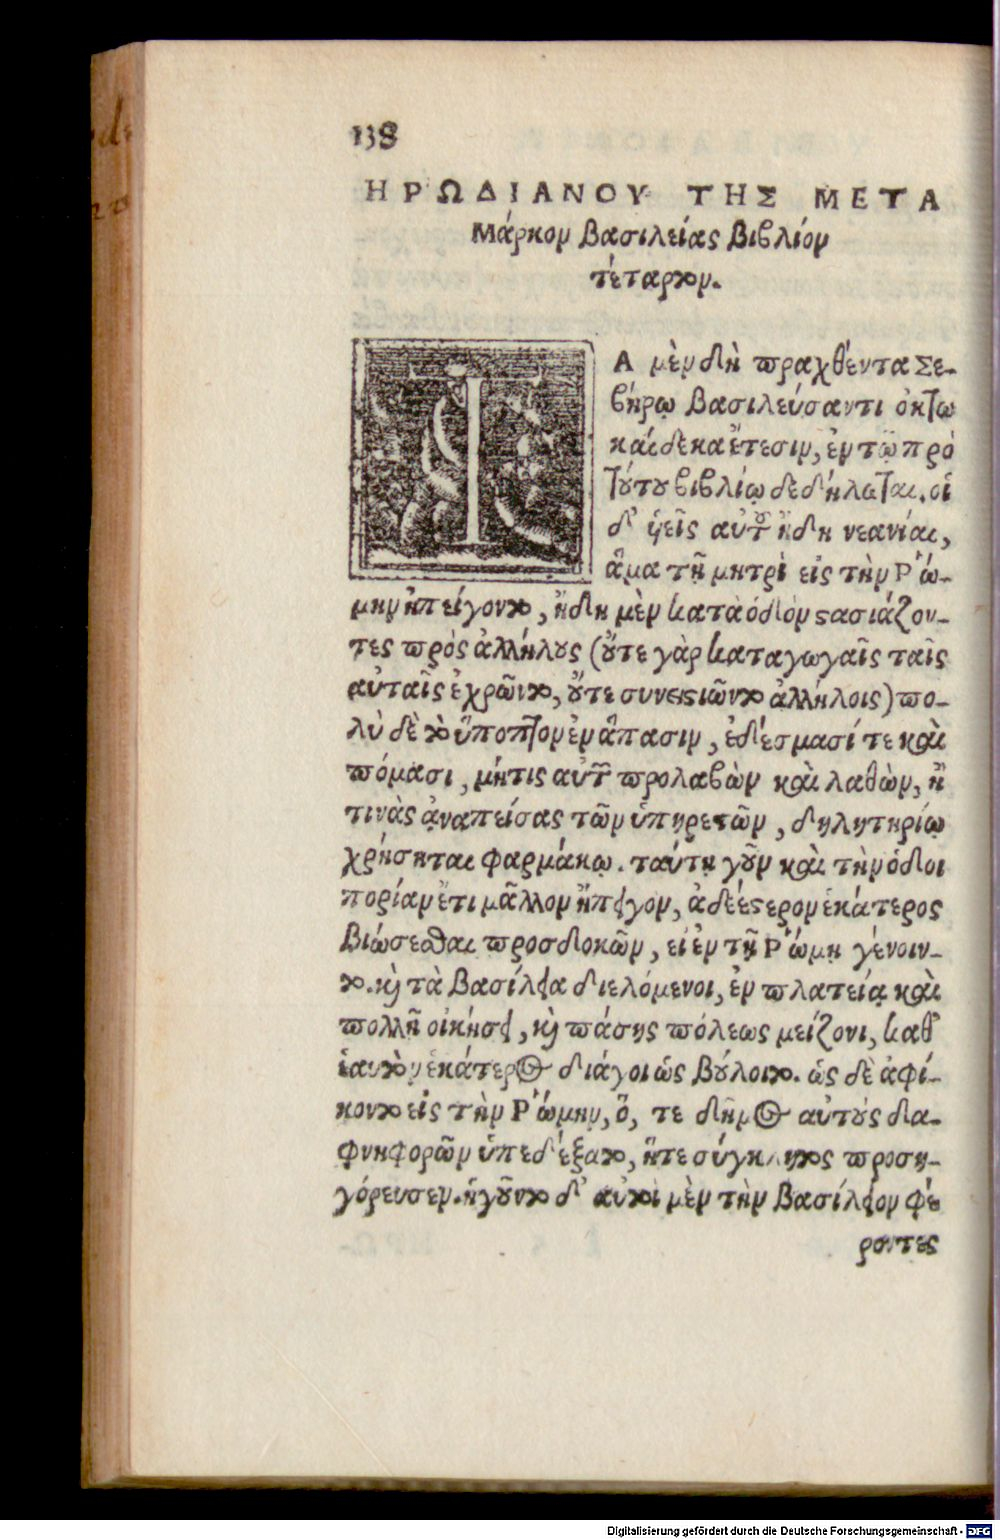 138
ΗΡΩΔΙΑΝΟΥ ΤΗΣ ΜΕΤΑ
Μάρκον βασιλείας βιβλίον
τέταρτον.
ΤΑ μὲν δὴ πραχθέντα Σε-
βήρῳ βασιλεύσαντι ὀκτω
καίδεκα ἔτεσιν, ἐν τῷ πρὸ
τούτου βιβλίῳ δεδήλωται. οἱ
δ' υἱεῖς αὐτοῦ ἤδη νεανίαι,
ἅμα τῇ μητρὶ εἰς τὴν Ῥώ-
μην ἠπείγοντο, ἤδη μὲν κατὰ ὁδὸν στασιάζον-
τες πρὸς ἀλλήλους (οὔτε γὰρ καταγωγαῖς ταῖς
αὐταῖς ἐχρῶντο, οὔτε συνειστιῶντο ἀλλήλοις) πο-
λὺ δὲ τὸ ὕποπτον ἐν ἅπασιν, ἐδέσμασί τε καὶ
πόμασι, μήτις αὐτῶν προλαβὼν καὶ λαθὼν, ἢ
τινὰς ἀναπείσας τῶν ὑπηρετῶν, δηλητηρίῳ
χρήσηται φαρμάκῳ. ταύτῃ γοῦν καὶ τὴν ὁδοι
πορίαν ἔτι μᾶλλον ἤπειγον, ἀδεέστερον ἑκάτερος
βιώσεσθαι προσδοκῶν, εἰ ἐν τῇ Ῥώμῃ γένοιν-
το. καὶ τὰ βασίλεια διελόμενοι, ἐν πλατείᾳ καὶ
πολλῇ οἰκήσει, καὶ πάσης πόλεως μείζονι, καθ'
ἑαυτὸν ἑκάτερος διάγοι ὡς βούλοιτο. ὡς δὲ ἀφί-
κοντο εἰς τὴν Ῥώμην, ὅ, τε δῆμος αὐτοὺς δα-
φνηφορῶν ὑπεδέξατο, ἥτε σύγκλητος προση-
γόρευσεν. ἡγοῦντο δ' αὐτοὶ μὲν τὴν βασίλειον φέ
ροντες
Digitalisierung gefördert durch die Deutsche Forschungsgemeinschaft - DFG